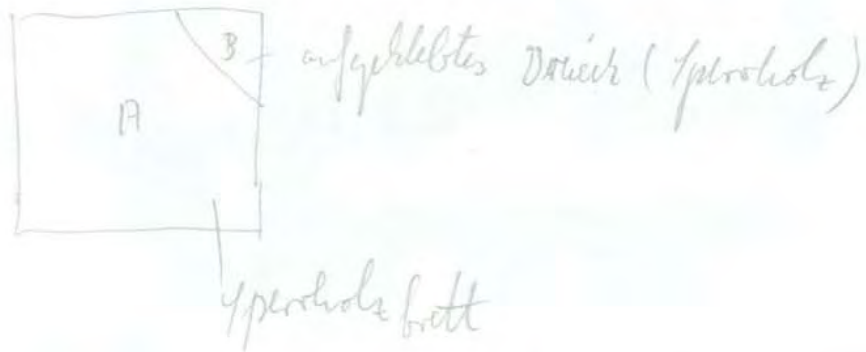 B aufgeklebtes Dreieck (Sperrholz)
A
Sperrholzbrett